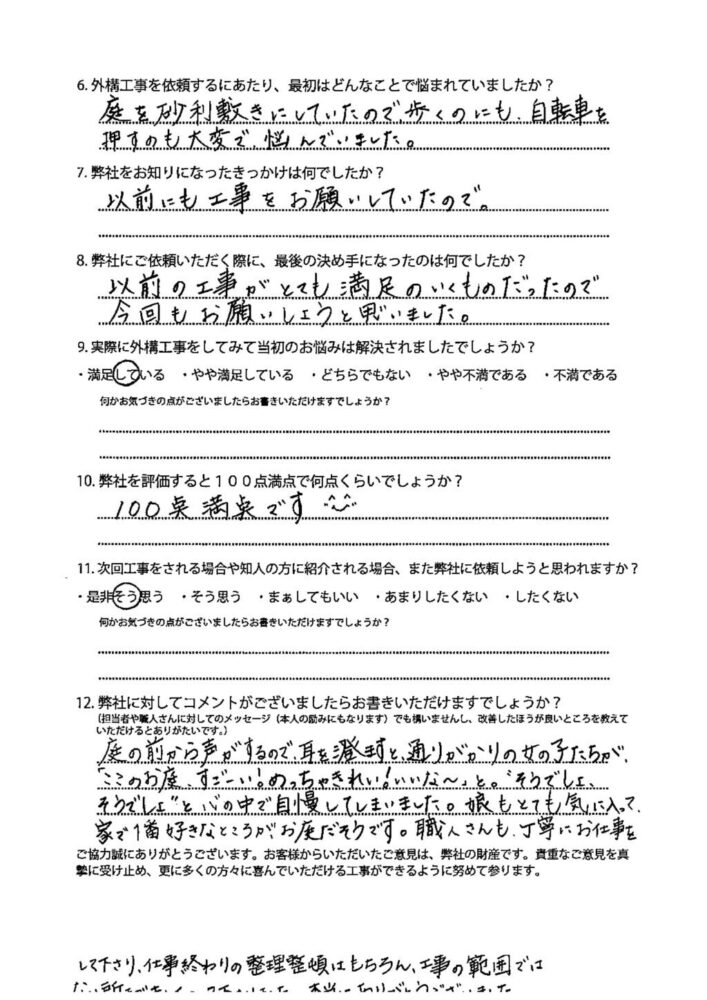 6. 外構工事を依頼するにあたり、最初はどんなことで悩まれていましたか？
庭を砂利敷きにしていたので、歩くのにも、自転車を
押すのも大変で、悩んでいました。
7. 弊社をお知りになったきっかけは何でしたか？
以前にも工事をお願いしていたので。
8. 弊社にご依頼いただく際に、最後の決め手になったのは何でしたか？
以前の工事がとても満足のいくものだったので
今回もお願いしようと思いました。
9. 実際に外構工事をしてみて当初のお悩みは解決されましたでしょうか？
・満足している ・やや満足している ・どちらでもない ・やや不満である ・不満である
何かお気づきの点がございましたらお書きいただけますでしょうか？
10. 弊社を評価すると１００点満点で何点くらいでしょうか？
100点満点です
11. 次回工事をされる場合や知人の方に紹介される場合、また弊社に依頼しようと思われますか？
・是非そう思う ・そう思う ・まぁしてもいい ・あまりしたくない ・したくない
何かお気づきの点がございましたらお書きいただけますでしょうか？
12. 弊社に対してコメントがございましたらお書きいただけますでしょうか？
（担当者や職人さんに対してのメッセージ（本人の励みにもなります）でも構いませんし、改善したほうが良いところを教えて
いただけるとありがたいです。）
庭の前から声がするので、耳を澄ますと、通りがかりの女の子たちが、
「ここのお庭、すごーい！めっちゃきれい！いいな〜」と。“そうでしょ、
そうでしょ”と心の中で自慢してしまいました。娘もとても気に入って、
家で1番好きなところがお庭だそうです。職人さんも、丁寧にお仕事を
ご協力誠にありがとうございます。お客様からいただいたご意見は、弊社の財産です。貴重なご意見を真
摯に受け止め、更に多くの方々に喜んでいただける工事ができるように努めて参ります。
して下さり、仕事終わりの整理整頓はもちろん、工事の範囲では